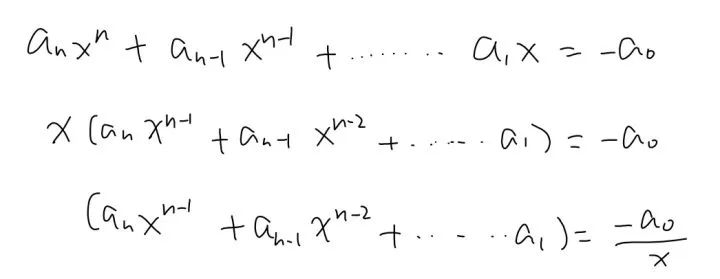 aₙxⁿ + aₙ₋₁ xⁿ⁻¹ + ........ a₁x = -a₀
x (aₙ xⁿ⁻¹ + aₙ₋₁ xⁿ⁻² + ...... a₁) = -a₀
(aₙxⁿ⁻¹ + aₙ₋₁ xⁿ⁻² + ..... a₁) = -a₀/x